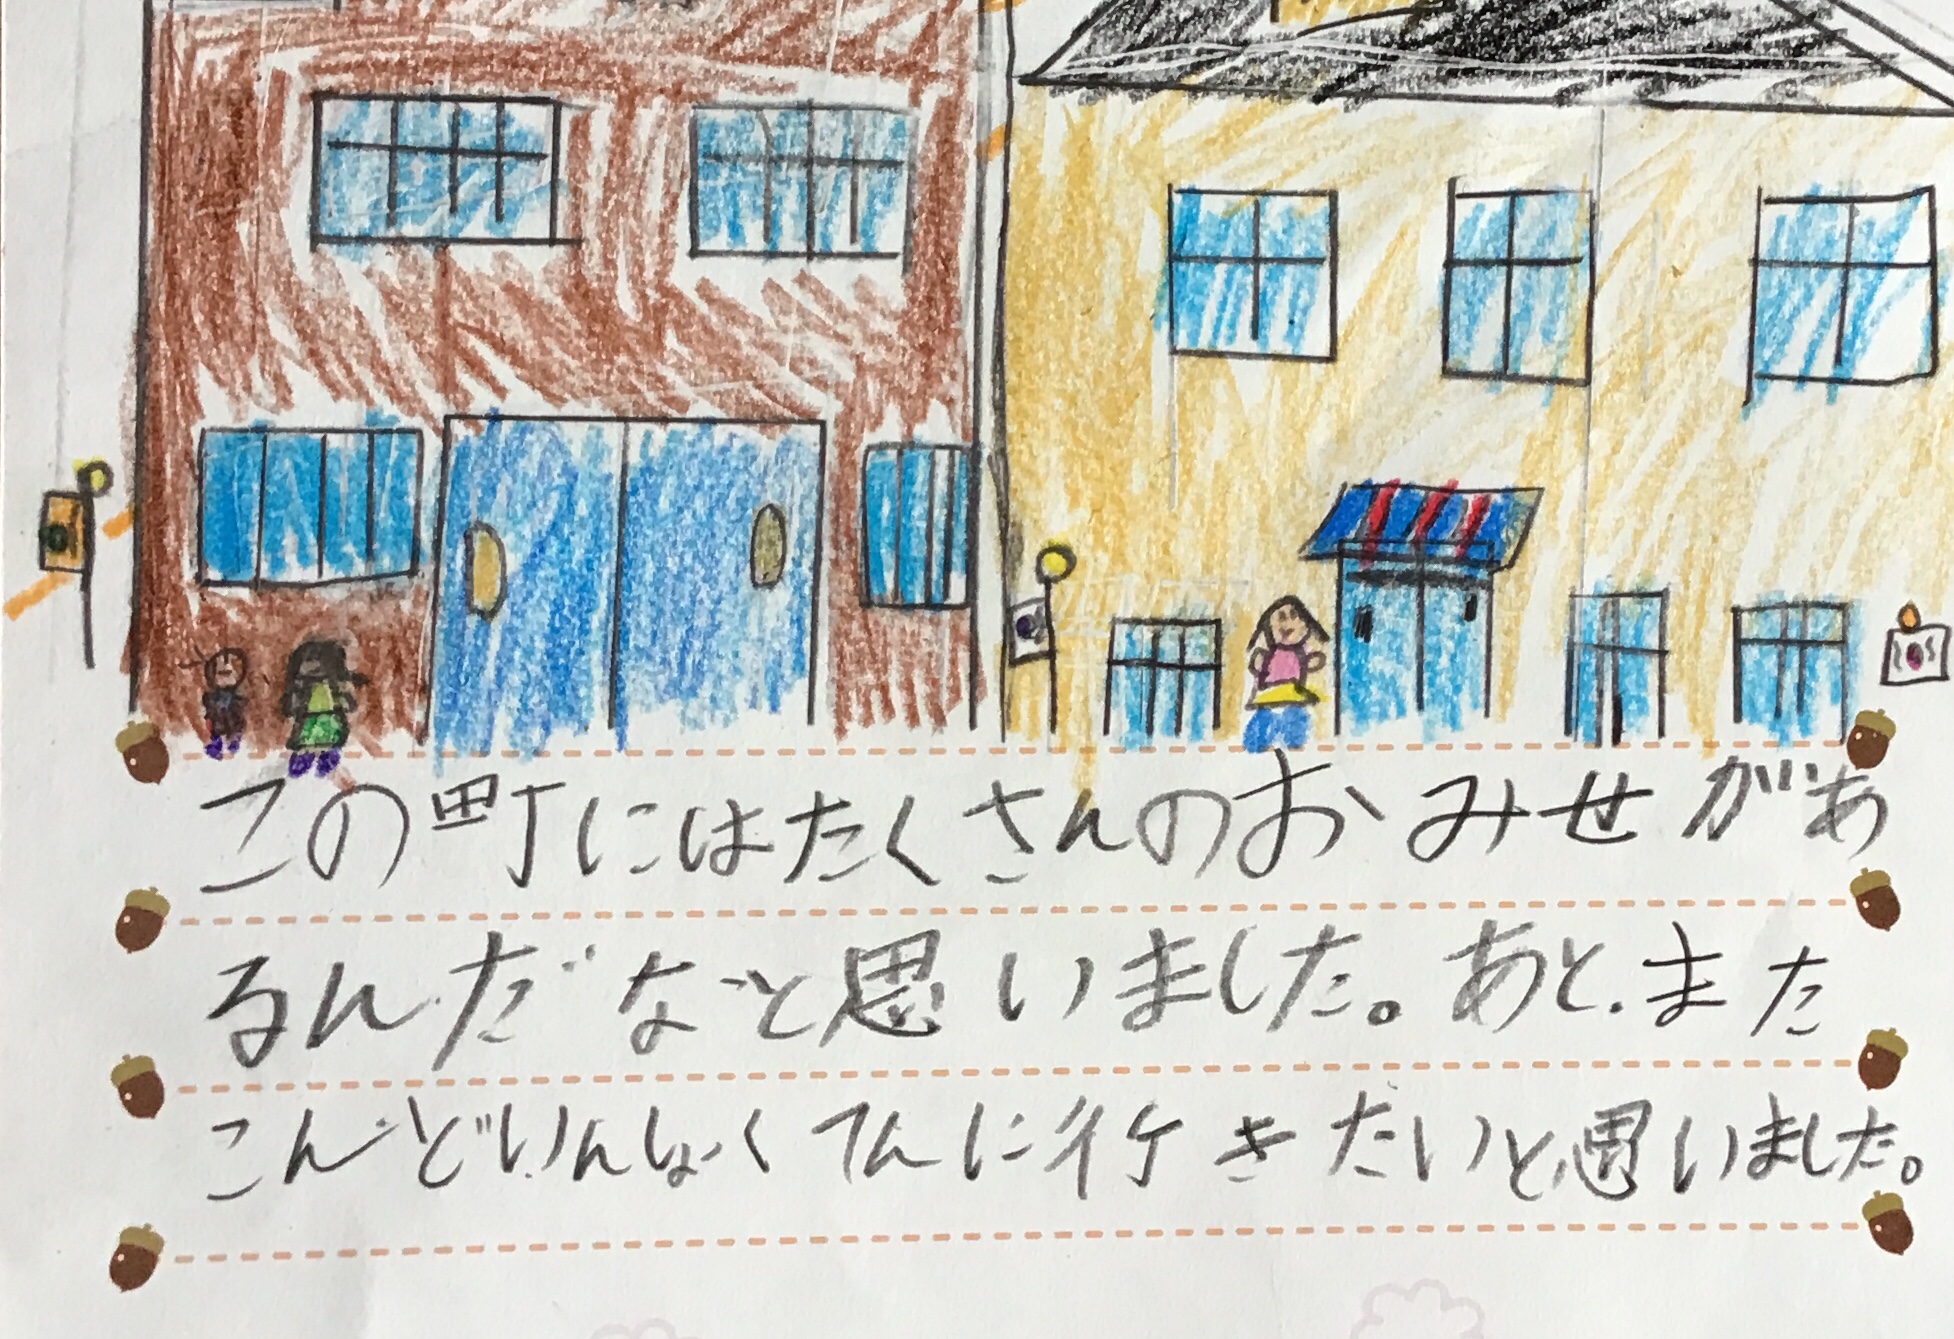 この町にはたくさんのおみせがあ
るんだなと思いました。あと、また
こんどいんしょくてんに行きたいと思いました。